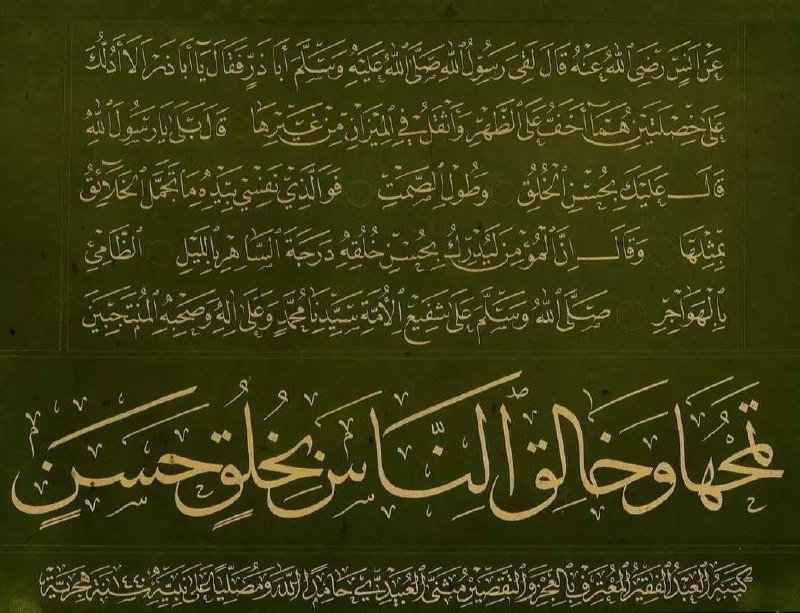 عَنْ أَنَسٍ رَضِيَ اللهُ عَنْهُ قَالَ لَقِيَ رَسُولُ اللهِ صَلَّى اللهُ عَلَيْهِ وَسَلَّمَ أَبَا ذَرٍّ فَقَالَ يَا أَبَا ذَرٍّ أَلَا أَدُلُّكَ
عَلَى خَصْلَتَيْنِ هُمَا أَخَفُّ عَلَى الظَّهْرِ وَأَثْقَلُ فِي الْمِيزَانِ مِنْ غَيْرِهَا قَالَ بَلَى يَا رَسُولَ اللهِ
قَالَ عَلَيْكَ بِحُسْنِ الْخُلُقِ وَطُولِ الصَّمْتِ فَوَالَّذِي نَفْسِي بِيَدِهِ مَا تَجَمَّلَ الْخَلَائِقُ
بِمِثْلِهَا وَقَالَ إِنَّ الْمُؤْمِنَ لَيُدْرِكُ بِحُسْنِ خُلُقِهِ دَرَجَةَ السَّاهِرِ بِاللَّيْلِ الظَّامِئِ
بِالْهَوَاجِرِ صَلَّى اللهُ وَسَلَّمَ عَلَى شَفِيعِ الْأُمَّةِ سَيِّدِنَا مُحَمَّدٍ وَعَلَى آلِهِ وَصَحْبِهِ الْمُنْتَجَبِينَ
تَمْحُهَا وَخَالِقِ النَّاسَ بِخُلُقٍ حَسَنٍ
كَتَبَهُ الْعَبْدُ الْفَقِيرُ الْمُعْتَرِفُ بِالْعَجْزِ وَالتَّقْصِيرِ مُثَنَّى الْعُبَيْدِيُّ حَامِدًا لِلَّهِ وَمُصَلِّيًا عَلَى نَبِيِّهِ سَنَةَ ١٤٤٠ هِجْرِيَّة